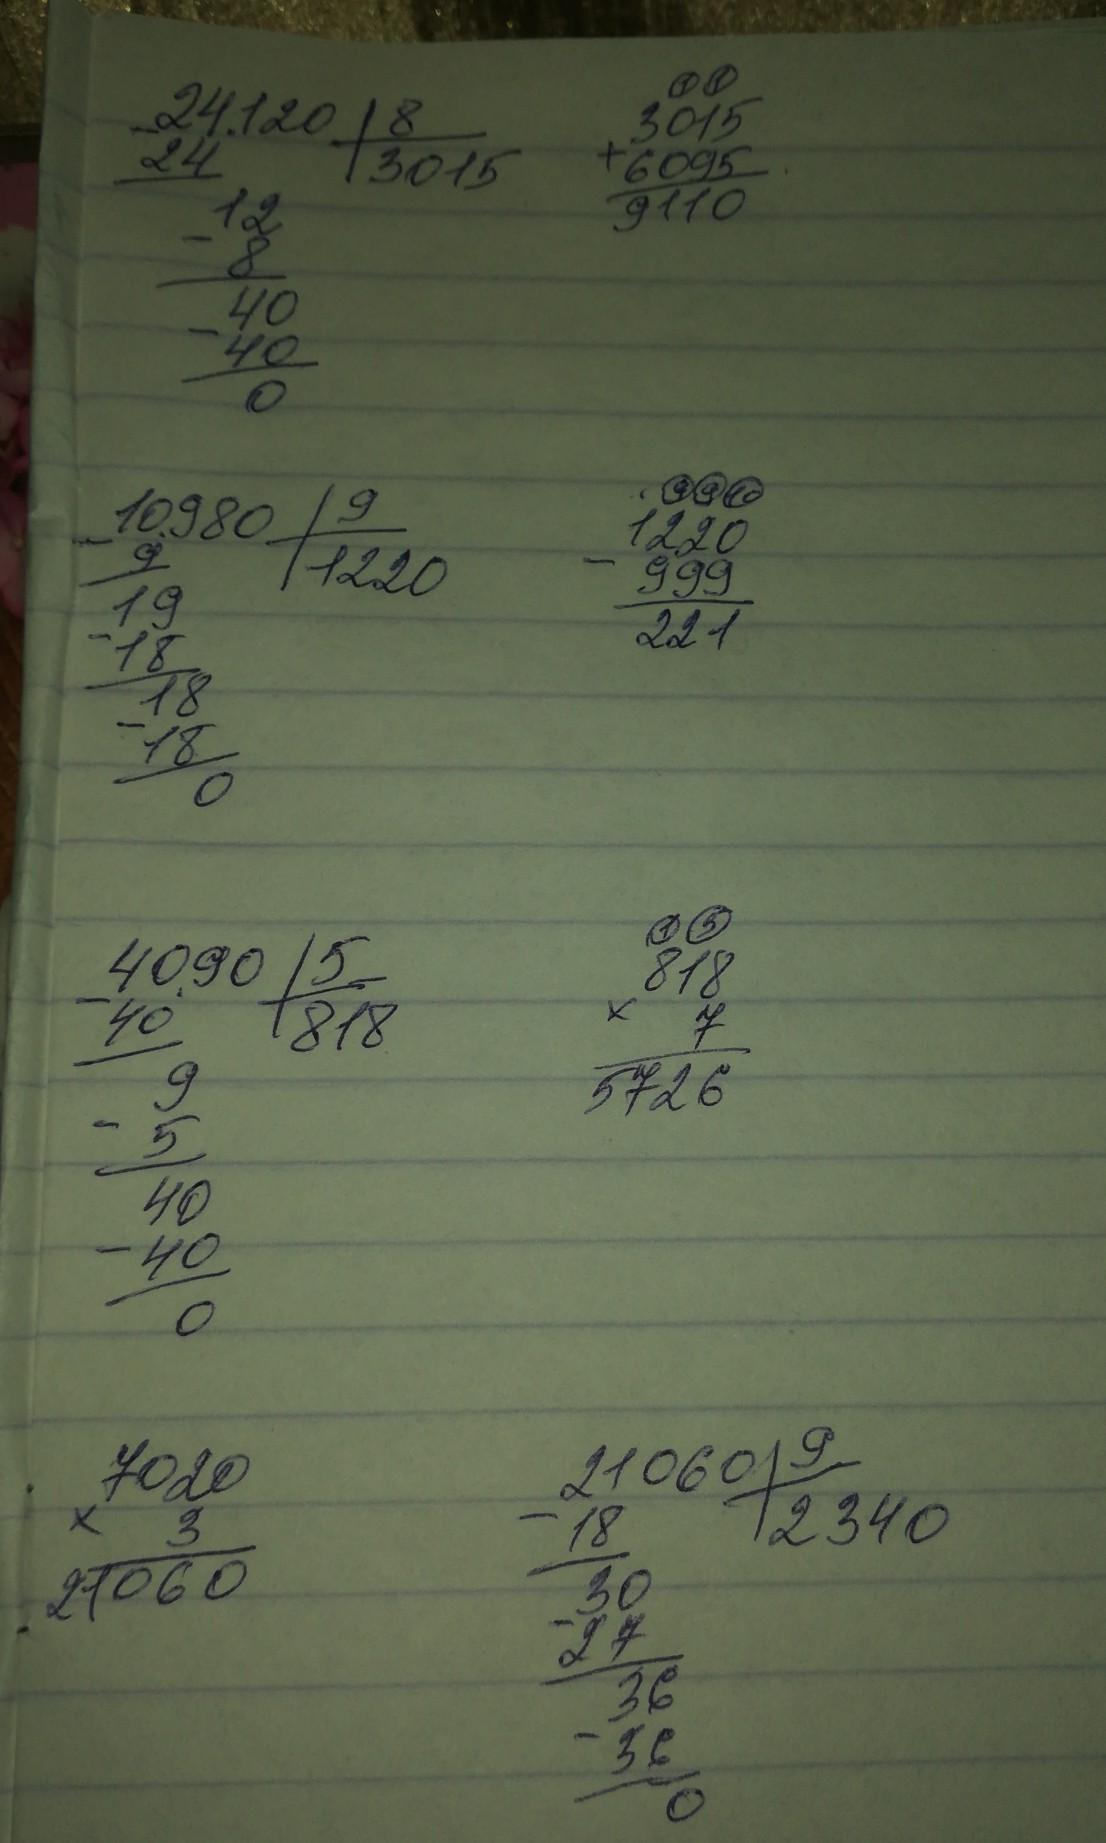 24.120 | 8
- 24 3015
12
- 8
40
- 40
0
1 1
3015
+ 6095
9110
10.980 | 9
- 9 1220
19
- 18
18
- 18
0
. 9 9 10
1220
- 999
221
40.90 | 5
- 40 818
9
- 5
40
- 40
0
1 5
818
× 7
5726
7020
× 3
21060
21060 | 9
- 18 2340
30
- 27
36
- 36
0